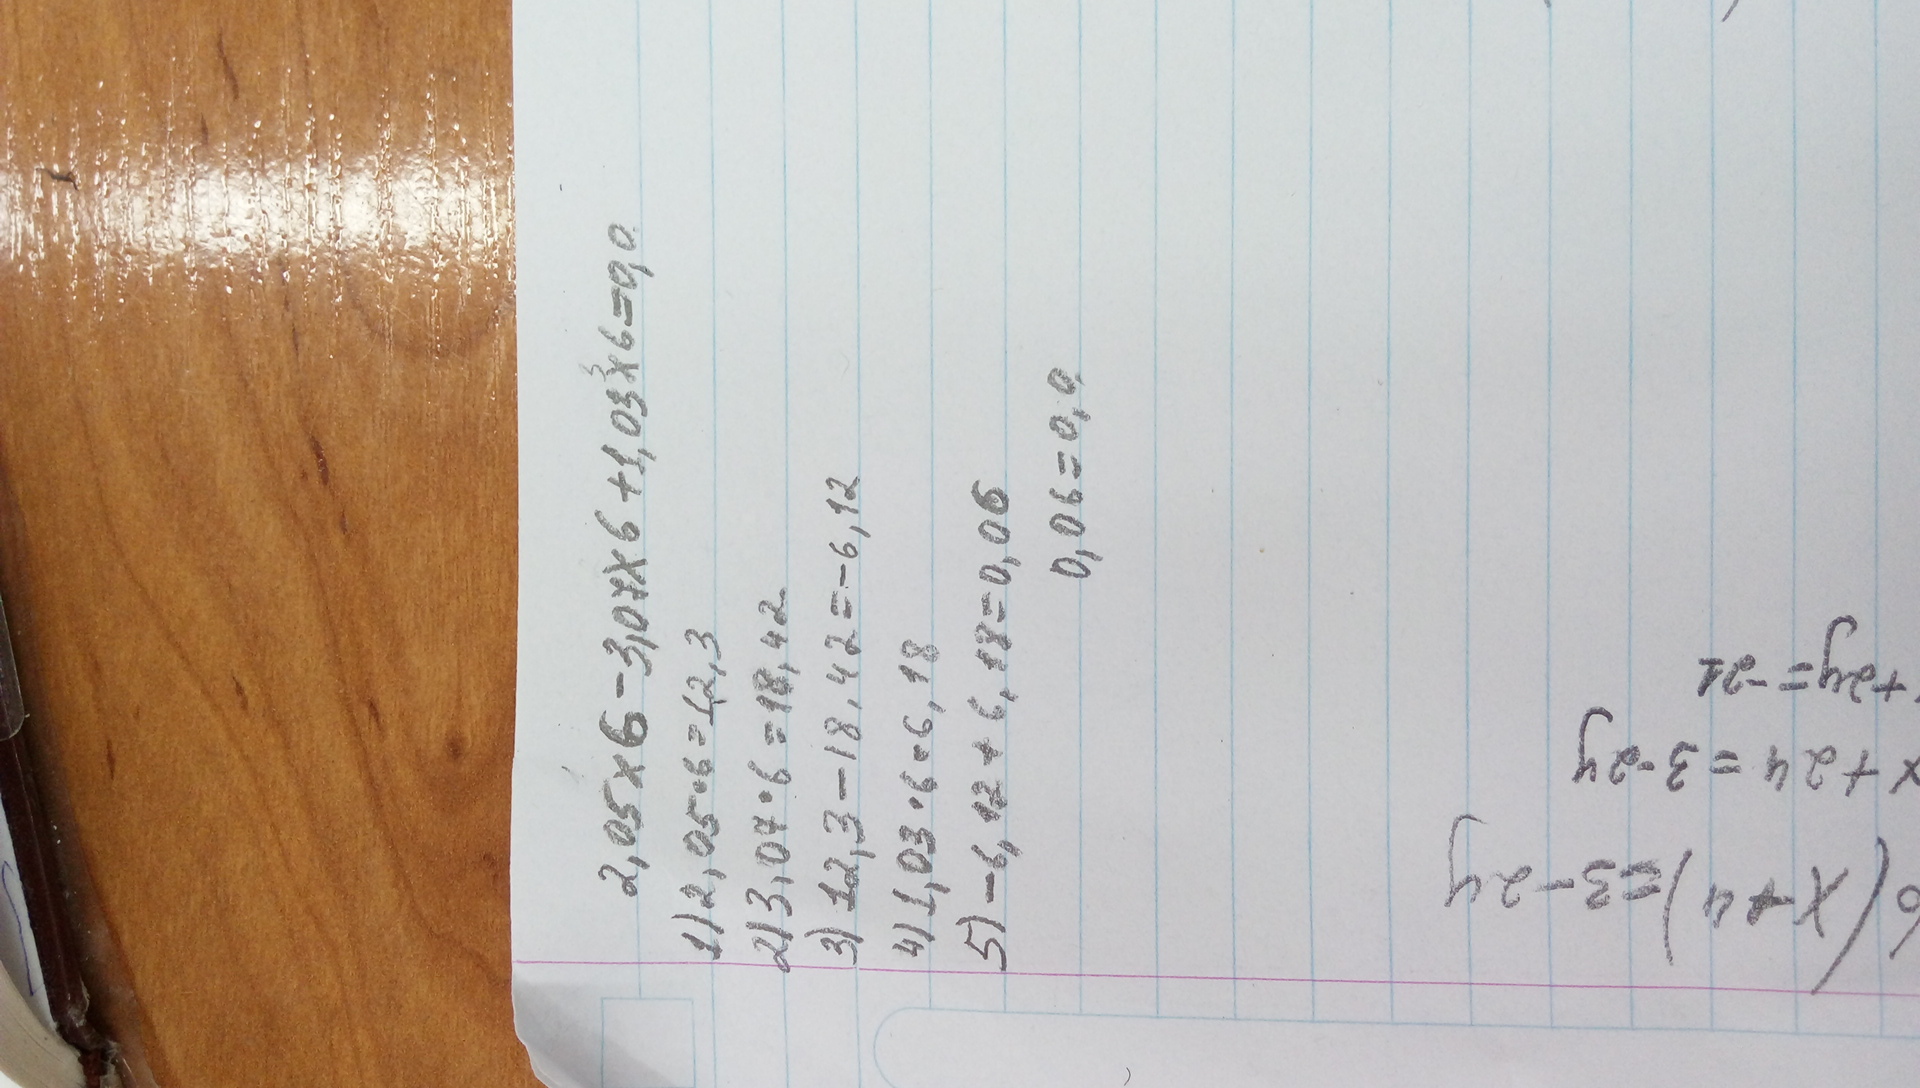 2,05x6-3,07x6+1,03x6=0,0
1) 2,05·6=12,3
2) 3,07·6=18,42
3) 12,3-18,42=-6,12
4) 1,03·6=6,18
5) -6,12+6,18=0,06
0,06=0,0
6(x+4)=3-2y
x+24=3-2y
+2y=-21